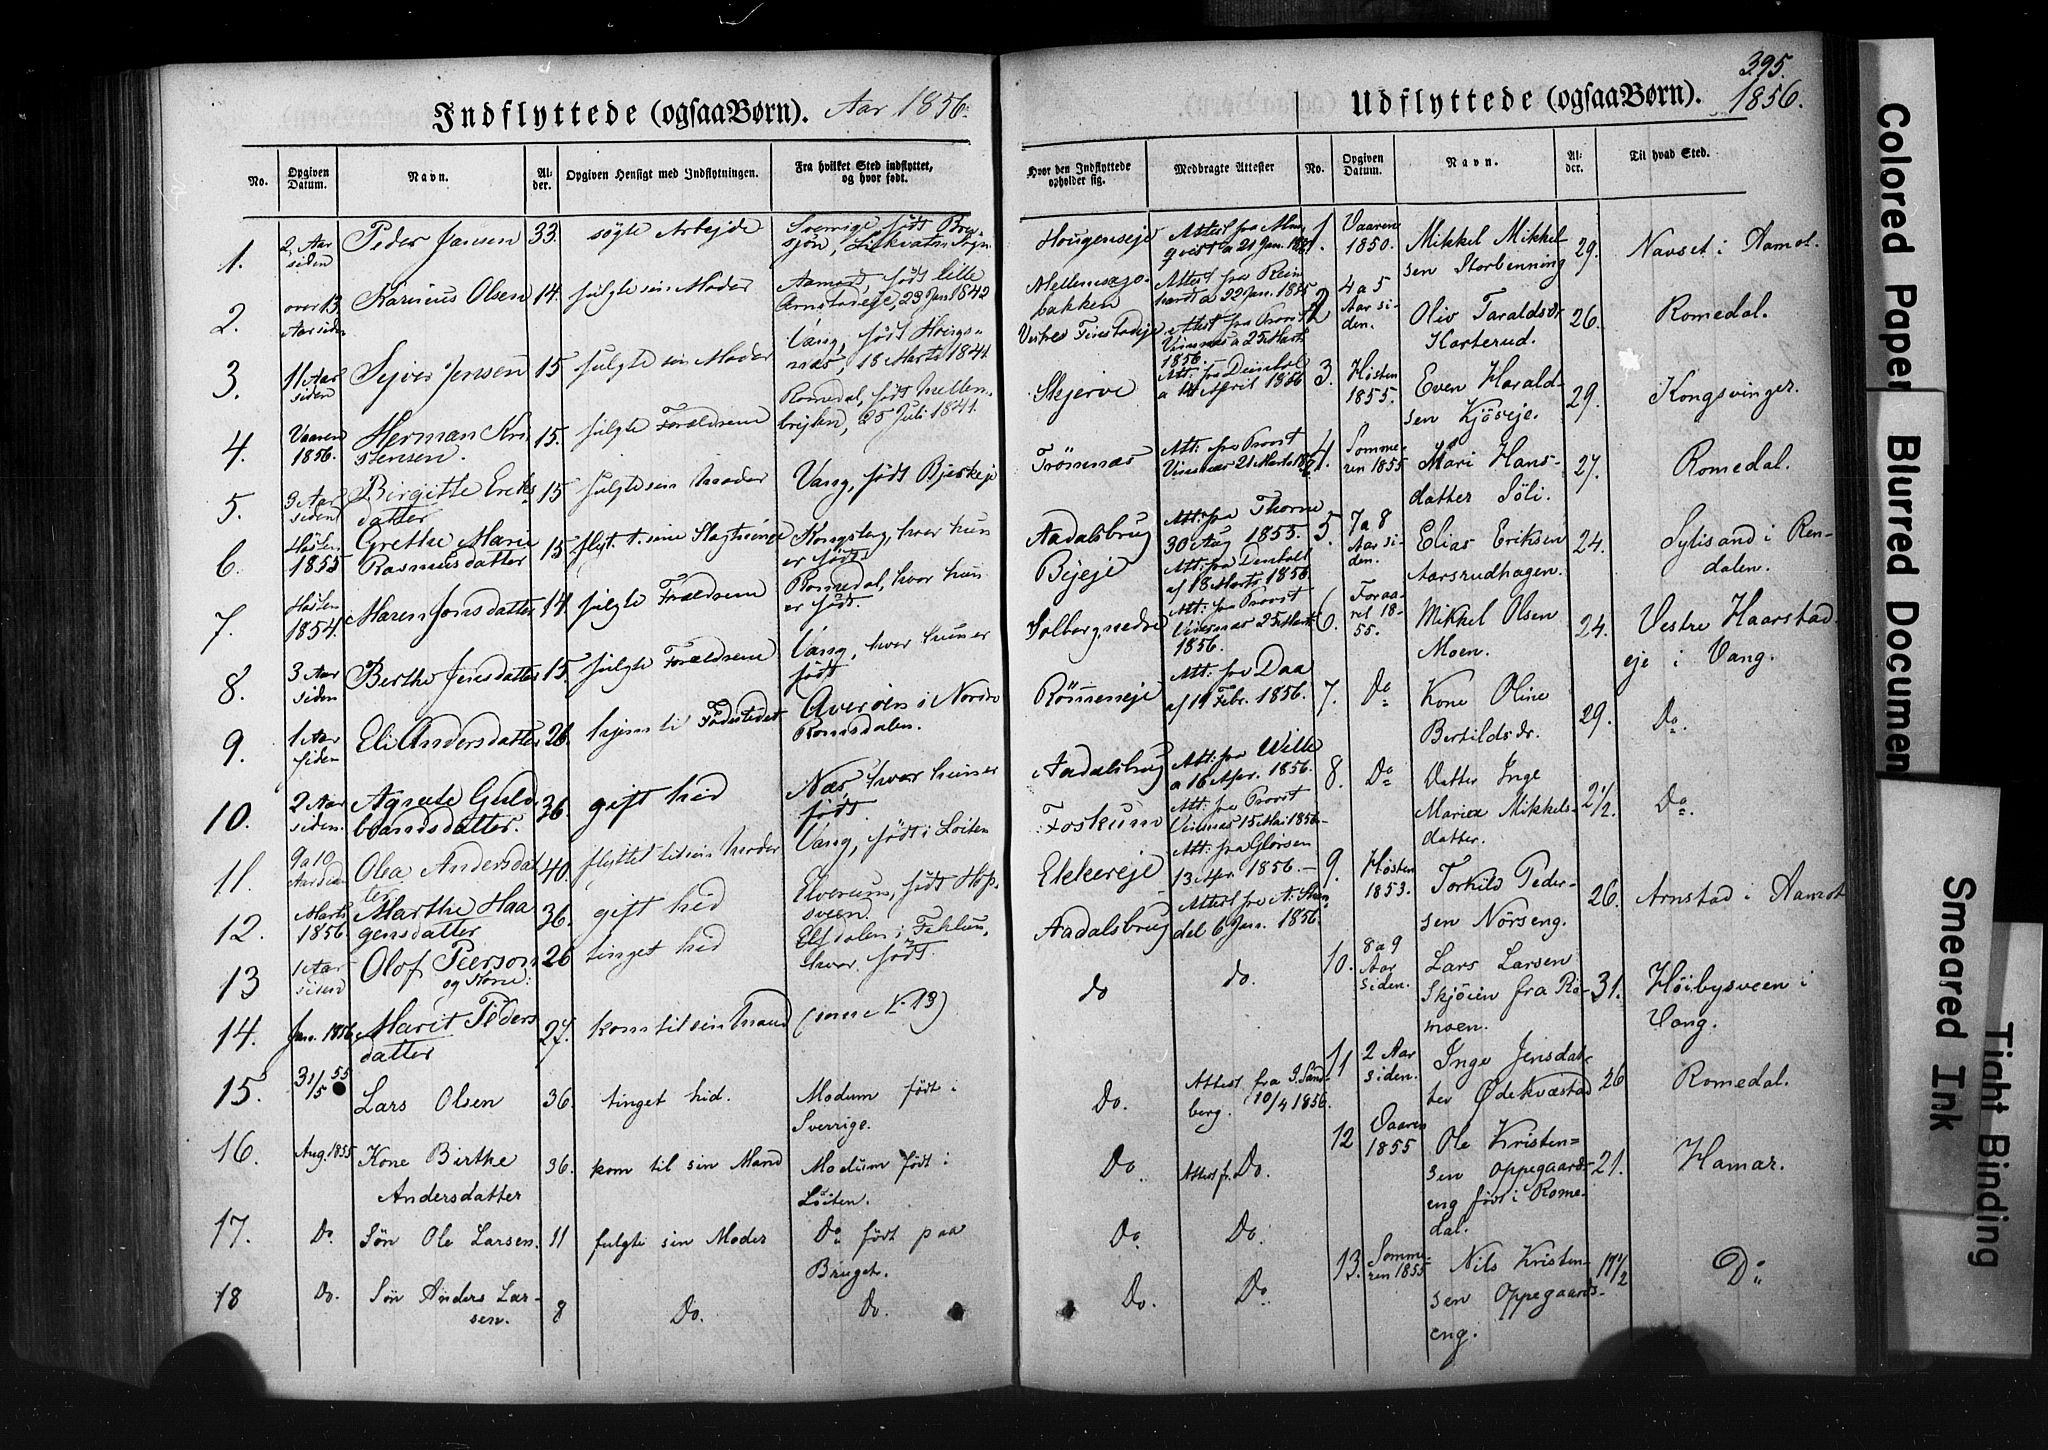 395.
Indflyttede (ogsaa Børn). Aar 1856.
No.
Opgiven Datum.
Navn.
Alder.
Opgiven Hensigt med Indflytningen.
Fra hvilket Sted indflyttet, og hvor født.
Hvor den Indflyttede opholder sig.
Medbragte Attester
1. 2 Aar siden Peder Jansen 33. søgte Arbejde Sverige, født Hougenseje
2. over 13 Aar siden Karinus Olsen 14. fulgte sin Moder Aamod, født lille 23 Jan 1842 bakken Attest fra 22 Jan. 1855
3. 11 Aar siden Sejver Jensen 15 fulgte sin Moder Vang, født 18 Marts 1841 Vestre Attest fra Provst Vinsnæs a 25 Marts 1856.
4. Vaaren 1856. Herman Kristensen. 15. fulgte Forældrene Romedal, født 25 Juli 1841. Skjerve Att: fra a April 1856
5. 3 Aar siden Birgitte Eriksdatter 15 fulgte sin Moder Vang, født Trømnæs Att: fra Provst Vinsnæs 21 Marts
6. Høsten 1855 Grethe Marie Rasmusdatter 15 flyt. t. sine Slægtninge Kongsberg, hvor hun er født Aadalsbrug Att: fra Thorne 30 Aug 1855.
7. Høsten 1854. Maren Jonsdatter 14. fulgte Forældrene Romedal, hvor hun er født. Byeje Att: fra af 18 Marts 1856.
8. 3 Aar siden Berthe Jensdatter 15. fulgte Forældrene Vang, hvor hun er født Solberg nedre Att: fra Provst Vinsnæs 25 Marts 1856.
9. 1 Aar siden Eli Andersdatter 26. hjem til Fødestedet Averøen i Nordre Romsdalen. Rømeneje Att: fra Daa af 19 Febr. 1856.
10. 2 Aar siden. Agnete Guldbrandsdatter. 36. gift hid Næs, hvor hun er født. Aadalsbrug Att: fra Wille a 16 Apr. 1856.
11. 9 a 10 Aar siden Olea Andersdatter 40. flyttet til sin Moder Vang, født i Løiten Foskum Att: fra Provst Vinsnæs 15 Mai 1856
12. Marts 1856. Marthe Haagensdatter 36. gift hid Elverum, født Ekkereje Att: fra Glørsen 13 Apr. 1856.
13 1 Aar siden Olof Peerson og Kone: 26 tinget hid Elfdalen i Fahlun, hvor født. Aadalsbrug Attest fra 6 Jan. 1856.
14. Jan. 1856 Marit Pedersdatter 27. kom til sin Mand (som N. 13) do do.
15. 31/5 55 Lars Olsen 36. tinget hid. Modum født i Sverrige. Do. Attest fra J. Sandberg. 10/4 1856.
16. Aug. 1855 Kone Birthe Andersdatter 36. kom til sin Mand Modum født i Løiten. Do. Attest fr. Do.
17. Do. Søn Ole Larsen. 11 fulgte sin Moder Do. født paa Bruget. Do. Do.
18 Do. Søn Anders Larsen. 8 Do. Do. Do. Do.
Udflyttede (ogsaa Børn). 1856.
No.
Opgiven Datum.
Navn.
Alder.
Til hvad Sted.
1. Vaaren 1850. Mikkel Mikkelsen Storbenning 29. Navset i Aamot.
2 4 a 5 Aar siden. Oliv Taraldsdr. Korterud. 26. Romedal.
3. Høsten 1855. Even Haraldsen Kjøseje. 29. Kongsvinger.
4. Sommeren 1855 Mari Hansdatter Søli. 27. Romedal.
5. 7 a 8 Aar siden. Elias Eriksen Aarsrudhagen. 24. i Rendalen.
6. Foraaret 1855. Mikkel Olsen Moen. 24. Vestre Haarstadeje i Vang.
7. Do Kone Oline Bertildsdr. 29. Do.
8. Do Datter Inge Marie Mikkelsdatter. 2 1/2. Do.
9. Høsten 1853. Torkild Pedersen Nørseng. 26. Arnstad i Aamot
10. 8 a 9 Aar siden. Lars Larsen Skjøien fra Romoen. 31. Høibysveen i Vang.
11 2 Aar siden. Inge Jensdatter Ødekvæstad 26 Romedal.
12 Vaaren 1855 Ole Kristensen Oppegaardseng født i Romedal. 21. Hamar.
13. Sommeren 1855 Nils Kristensen Oppegaardseng. 17 1/2 Do
Colored Paper
Blurred Document
Smeared Ink
Tight Binding